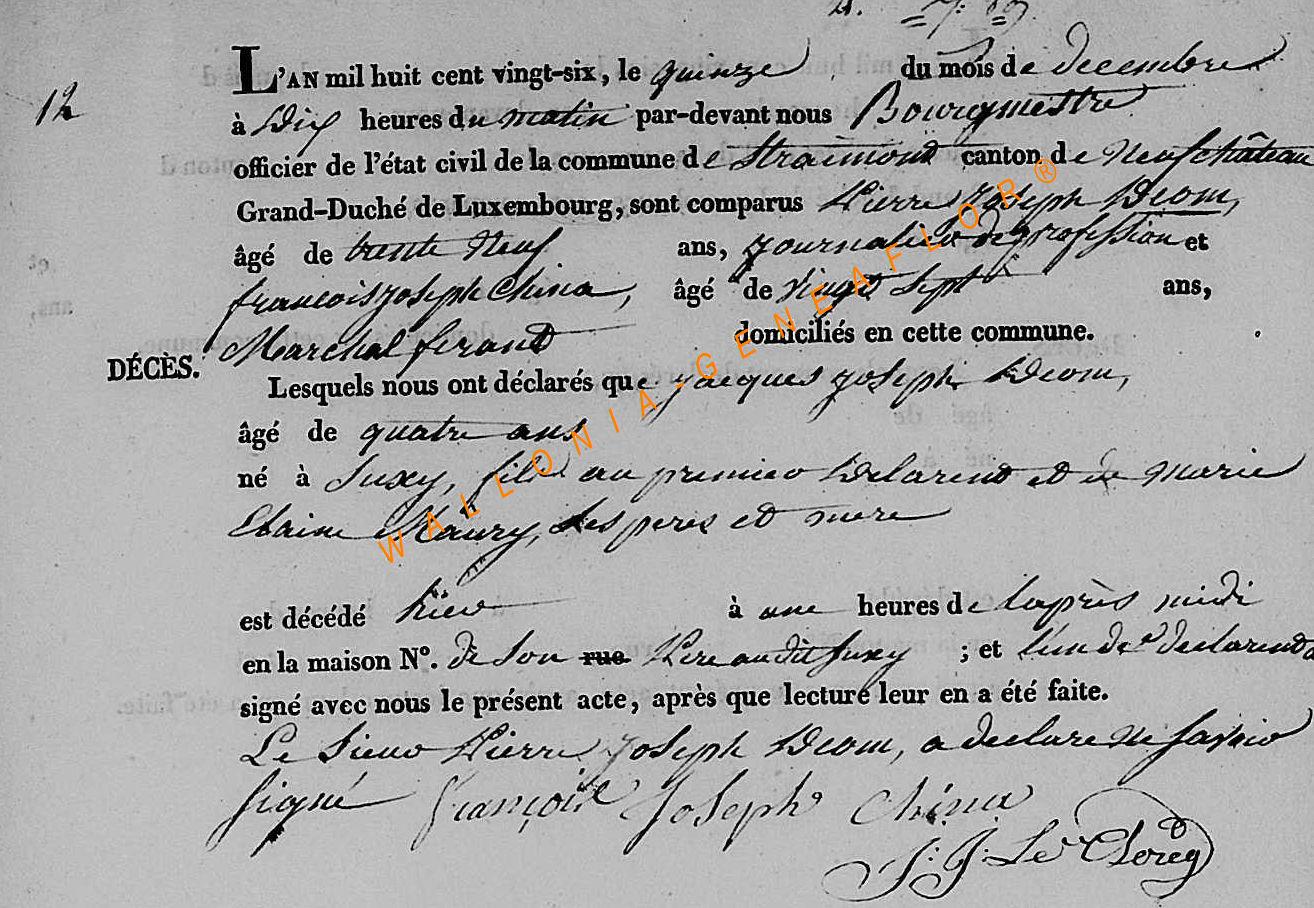 12
L'AN mil huit cent vingt-six, le quinze du mois de decembre
à Dix heures du matin par-devant nous Bourgmestre
officier de l'état civil de la commune de Straimont canton de Neufchâteau
Grand-Duché de Luxembourg, sont comparus Pierre Joseph Deom,
âgé de trente neuf ans, journalier de profession et
françois joseph China, âgé de vingt sept ans,
Marchal ferant domiciliés en cette commune.
DÉCÈS.
Lesquels nous ont déclarés que jacques joseph Deom,
âgé de quatre ans
né à Suxy, fils au premier Delarent et de Marie
Maury, ses peres et mere
est décédé hier à une heures de laprès midi
en la maison N°. de son rue Pere audit Suxy ; et l'un des declarents
signé avec nous le présent acte, après que lecture leur en a été faite.
Le Sieur Pierre joseph Deom, a declare ne savoir
signé françois Joseph China
J: J: Le Clercq
WALLONIA-GENEAFLOR®